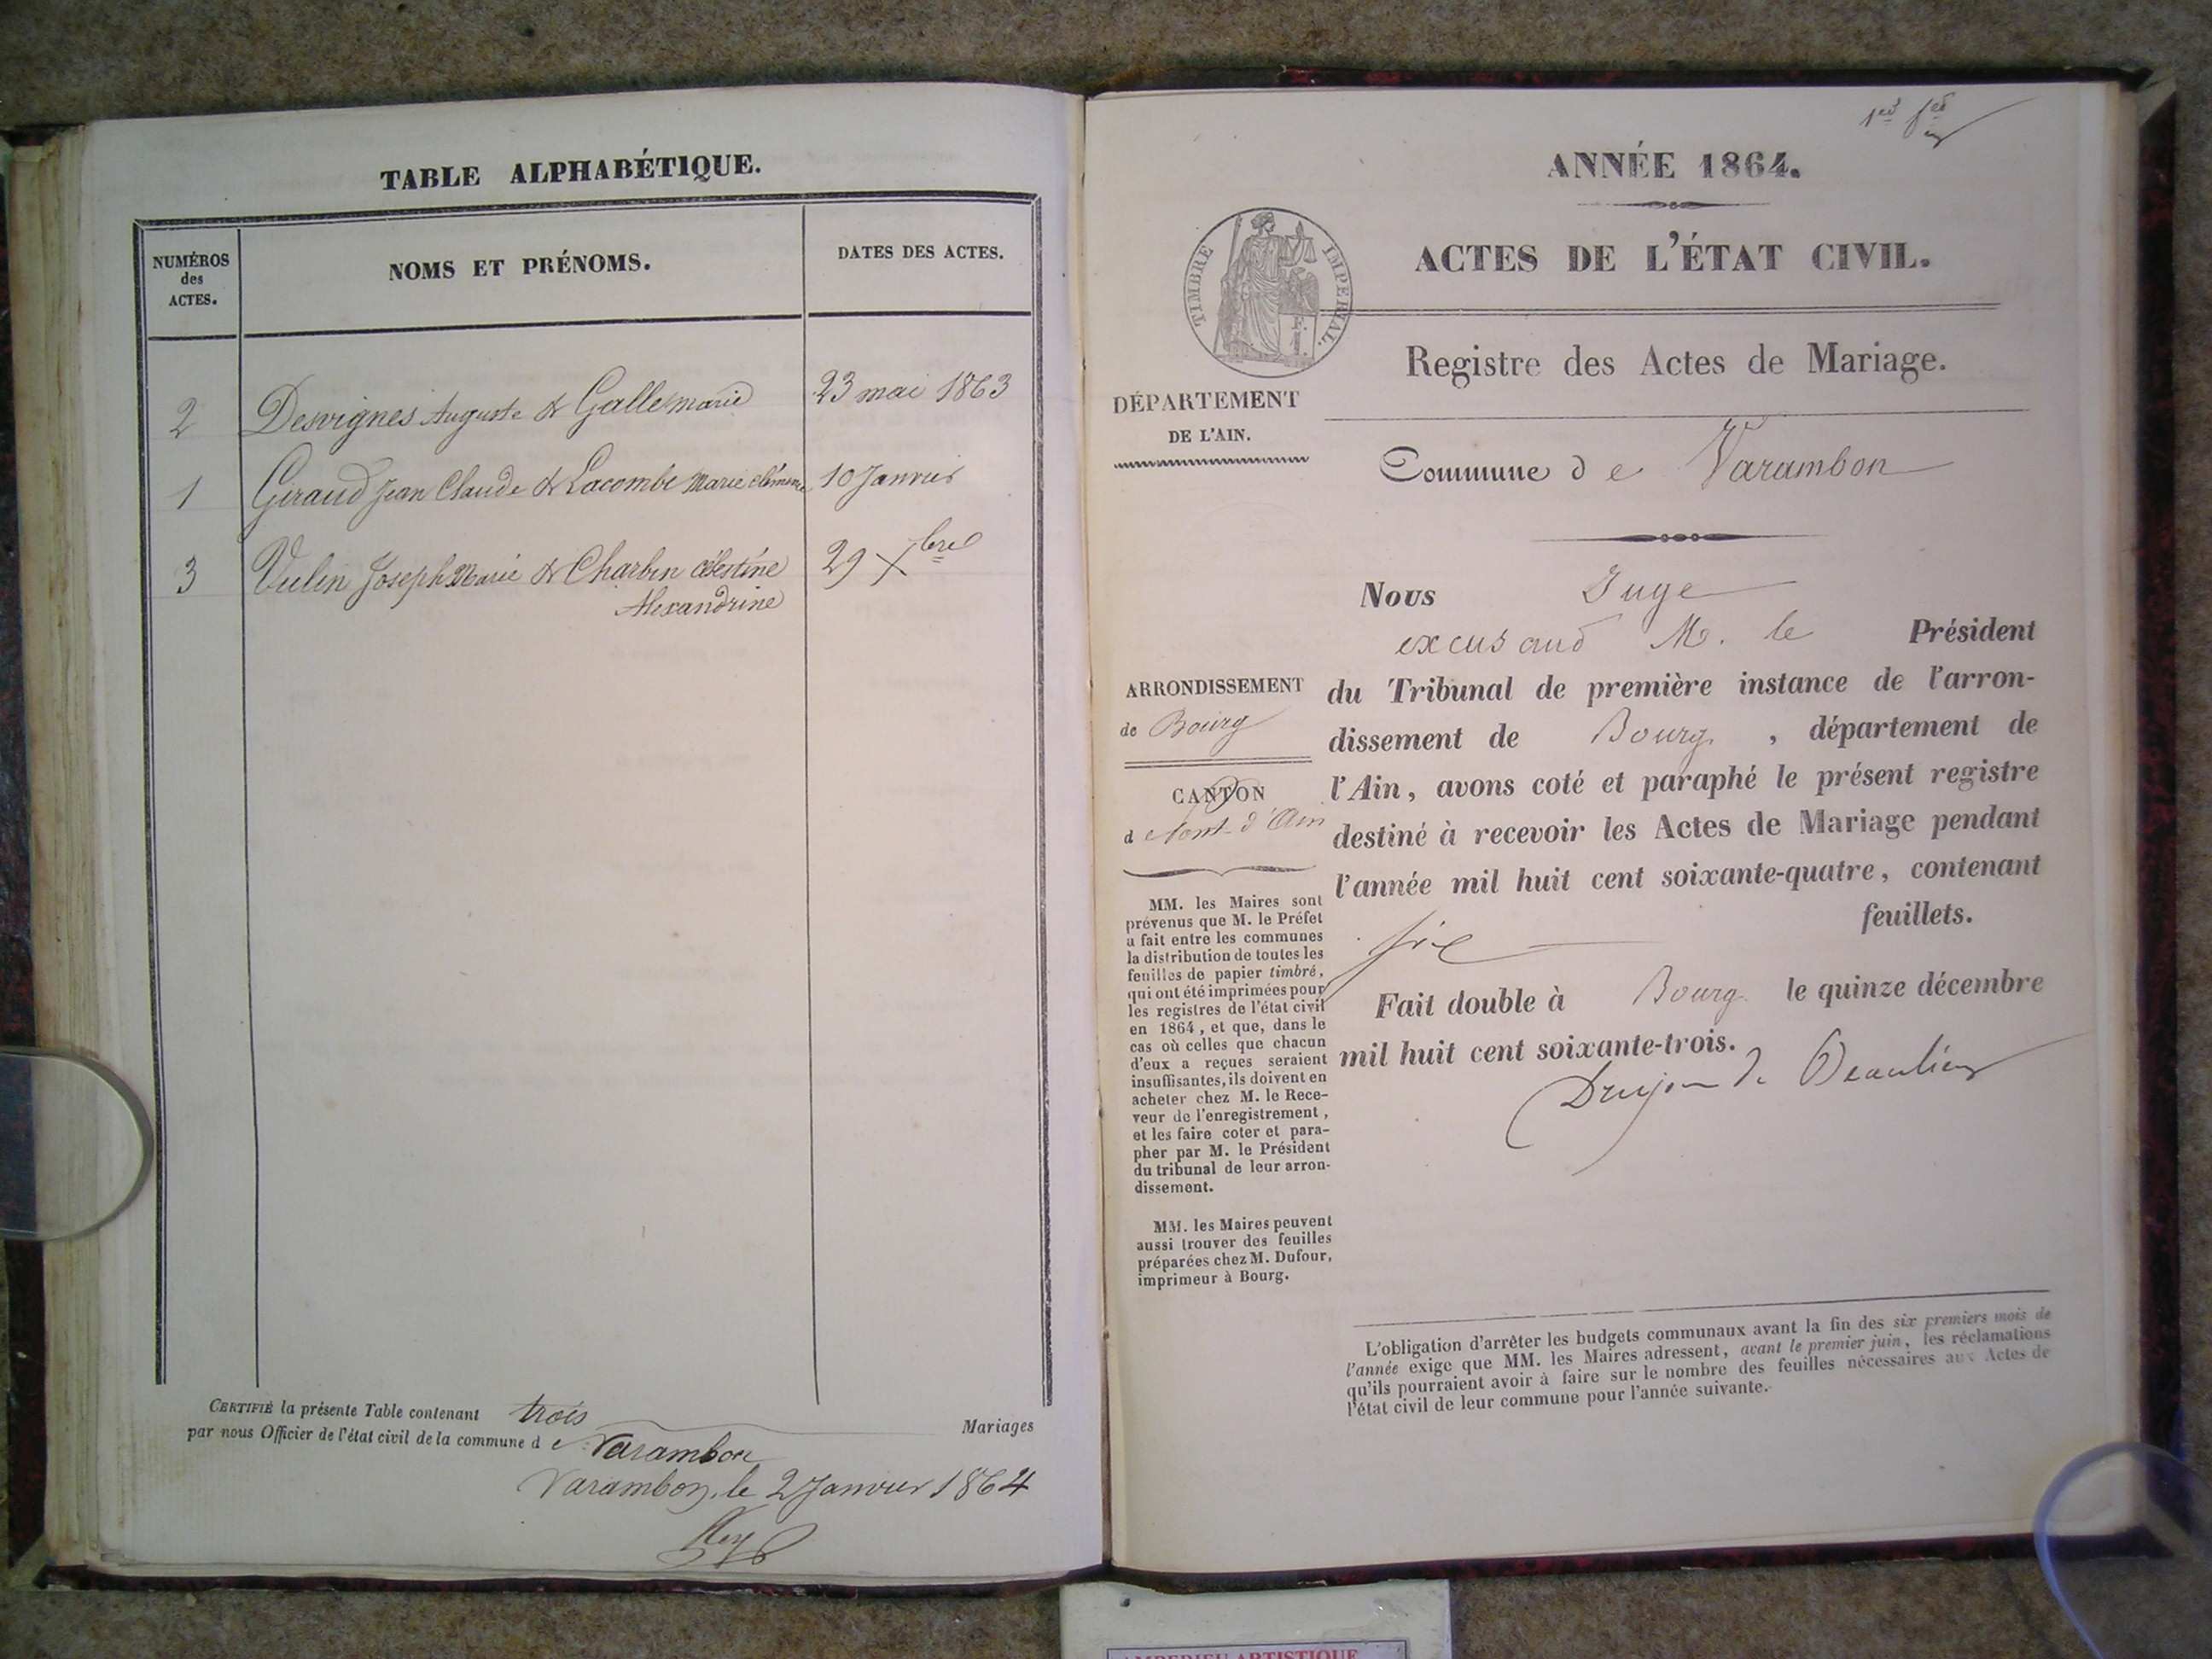 TABLE ALPHABÉTIQUE.
NUMÉROS
des
ACTES.
NOMS ET PRÉNOMS.
DATES DES ACTES.
2 Desvignes Auguste & Galle marie 23 mai 1863
1 Giraud Jean Claude & Lacombe Marie clémence 10 Janvier
3 Vulin Joseph Marie & Charbin Célestine 29 Xbre
Alexandrine
CERTIFIÉ la présente Table contenant trois Mariages
par nous Officier de l'état civil de la commune d e Varambon
Varambon, le 2 Janvier 1864
1er
ANNÉE 1864.
TIMBRE IMPERIAL.
ACTES DE L'ÉTAT CIVIL.
Registre des Actes de Mariage.
DÉPARTEMENT
DE L'AIN.
Commune d e Varambon
Nous Juge
excusant M. le Président
du Tribunal de première instance de l'arron-
dissement de Bourg, département de
l'Ain, avons coté et paraphé le présent registre
destiné à recevoir les Actes de Mariage pendant
l'année mil huit cent soixante-quatre, contenant
six feuillets.
Fait double à Bourg le quinze décembre
mil huit cent soixante-trois.
Drujon de Beaulieu
ARRONDISSEMENT
de Bourg
CANTON
d e Pont-d'Ain
MM. les Maires sont
prévenus que M. le Préfet
a fait entre les communes
la distribution de toutes les
feuilles de papier timbré,
qui ont été imprimées pour
les registres de l'état civil
en 1864, et que, dans le
cas où celles que chacun
d'eux a reçues seraient
insuffisantes, ils doivent en
acheter chez M. le Rece-
veur de l'enregistrement,
et les faire coter et para-
pher par M. le Président
du tribunal de leur arron-
dissement.
MM. les Maires peuvent
aussi trouver des feuilles
préparées chez M. Dufour,
imprimeur à Bourg.
L'obligation d'arrêter les budgets communaux avant la fin des six premiers mois de
l'année exige que MM. les Maires adressent, avant le premier juin, les réclamations
qu'ils pourraient avoir à faire sur le nombre des feuilles nécessaires aux Actes de
l'état civil de leur commune pour l'année suivante.
AMBERIEU ARTISTIQUE